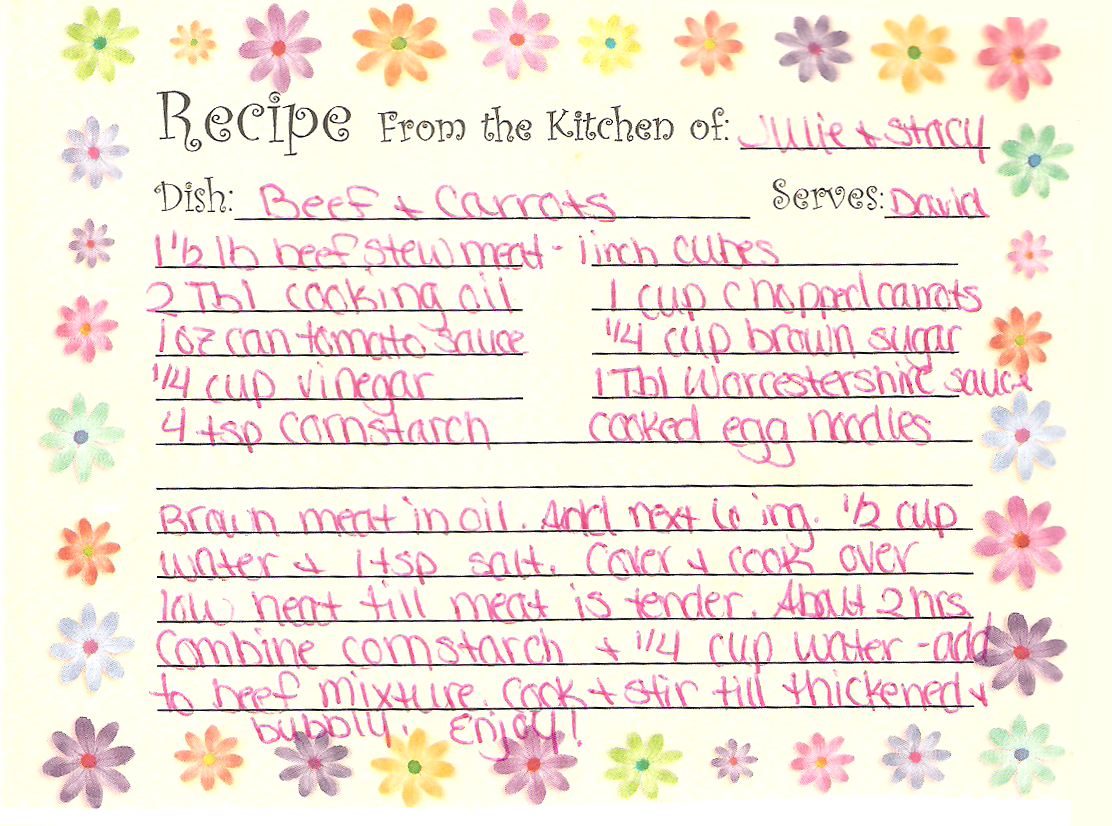 Recipe From the Kitchen of: Julie + Stacy
Dish: Beef + Carrots Serves: David
1 1/2 lb beef stew meat - 1 inch cubes
2 Tbl cooking oil 1 cup chopped carrots
1 oz can tomato sauce 1/4 cup brown sugar
1/4 cup vinegar 1 Tbl Worcestershire sauce
4 tsp cornstarch cooked egg noodles
Brown meat in oil. Add next 6 ing. 1/2 cup
water + 1 tsp salt. Cover + cook over
low heat till meat is tender. About 2 hrs.
Combine cornstarch + 1/4 cup water - add
to beef mixture. Cook + stir till thickened +
bubbly. Enjoy!